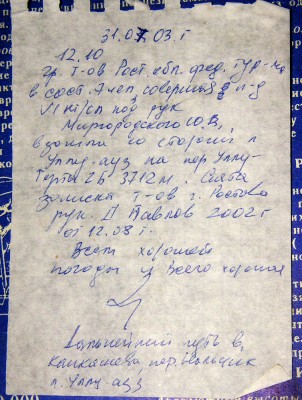 31.07.03 г
12.10
Гр. т-ов Рост. обл. фед. тур-ма
в сост. 7 чел соверш п-д
VI кт/сл под рук
Миргородского Ю.В,
взошла со стороны л
Уллу-ауз на пер Уллу-
2Б 3712м. Снята
записка т-ов г. Ростова
рук. Д Павлов 2002г
от 12.08 г.
Всем хорошей
погоды и Всего хорошего
Дальнейший путь в.
пер.
л. Уллу-ауз